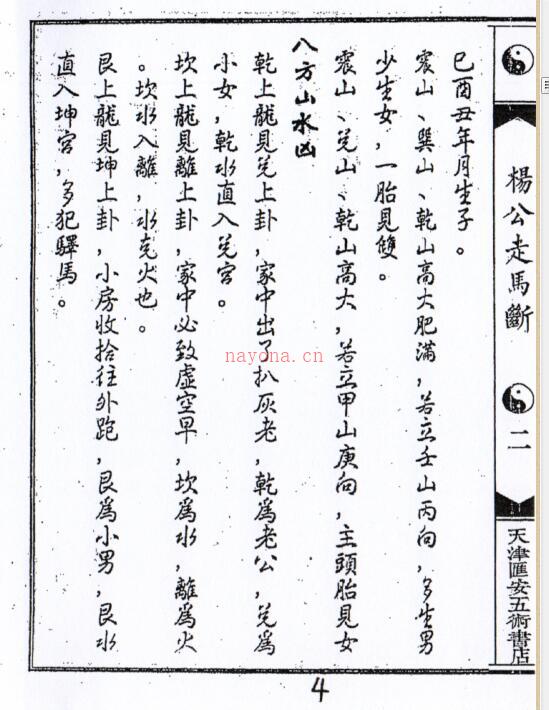 楊公走馬斷
二
天津匯安五術書店
巳酉丑年月生子。
震山、巽山、乾山高大肥滿，若立壬山丙向，多生男
少生女，一胎見雙。
震山、兌山、乾山高大，若立甲山庚向，主頭胎見女
八方山水凶
乾上龍見兌上卦，家中出了扒灰老，乾為老公，兌為
小女，乾水直入兌宮。
坎上龍見離上卦，家中必致虛空早，坎為水，離為火
。坎水入離，水克火也。
艮上龍見坤上卦，小房收拾往外跑，艮為小男，艮水
直入坤宮，多犯驛馬。
4
nayona.cn